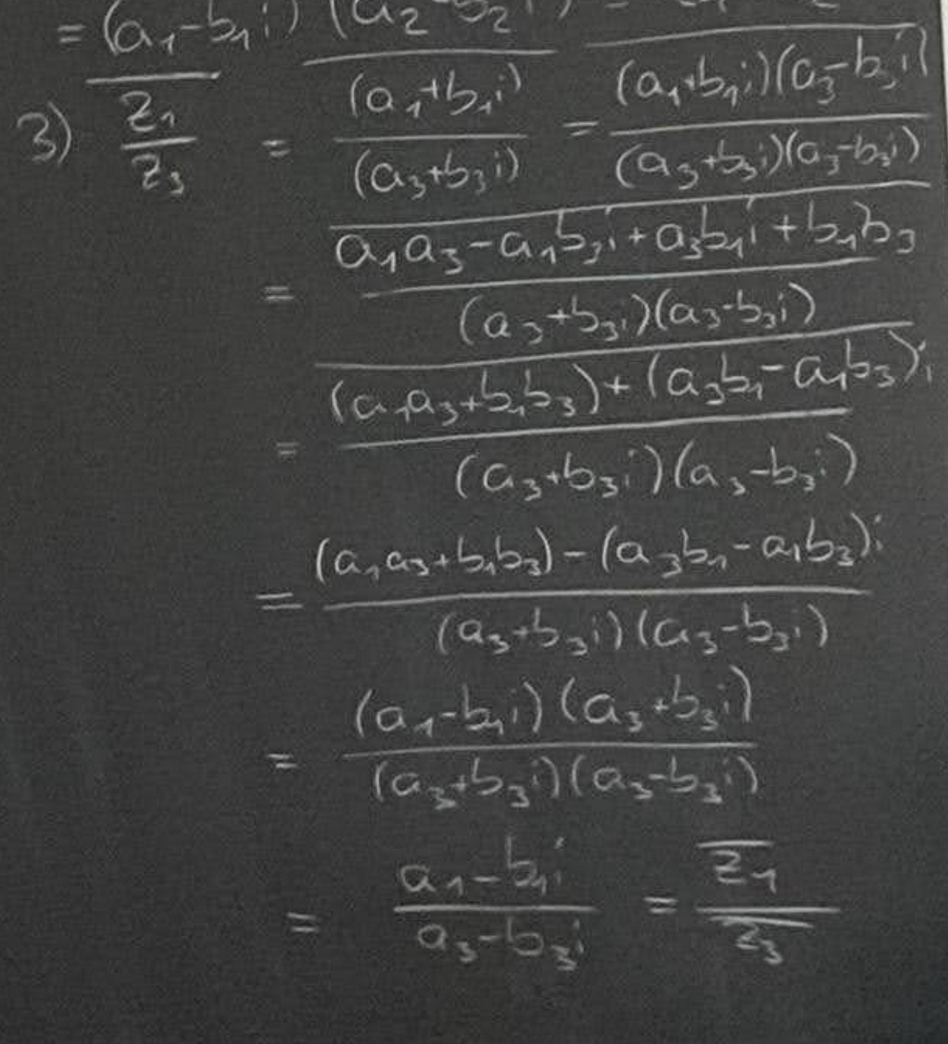 = (a₁-b₁i) (a₂-b₂i) =
3) \overline{\frac{z₁}{z₃}} = \overline{\frac{(a₁+b₁i)}{(a₃+b₃i)}} = \overline{\frac{(a₁+b₁i)(a₃-b₃i)}{(a₃+b₃i)(a₃-b₃i)}}
= \overline{\frac{a₁a₃-a₁b₃i+a₃b₁i+b₁b₃}{(a₃+b₃i)(a₃-b₃i)}}
= \overline{\frac{(a₁a₃+b₁b₃)+(a₃b₁-a₁b₃)i}{(a₃+b₃i)(a₃-b₃i)}}
= \frac{(a₁a₃+b₁b₃)-(a₃b₁-a₁b₃)i}{(a₃+b₃i)(a₃-b₃i)}
= \frac{(a₁-b₁i)(a₃+b₃i)}{(a₃+b₃i)(a₃-b₃i)}
= \frac{a₁-b₁i}{a₃-b₃i} = \frac{\overline{z₁}}{\overline{z₃}}